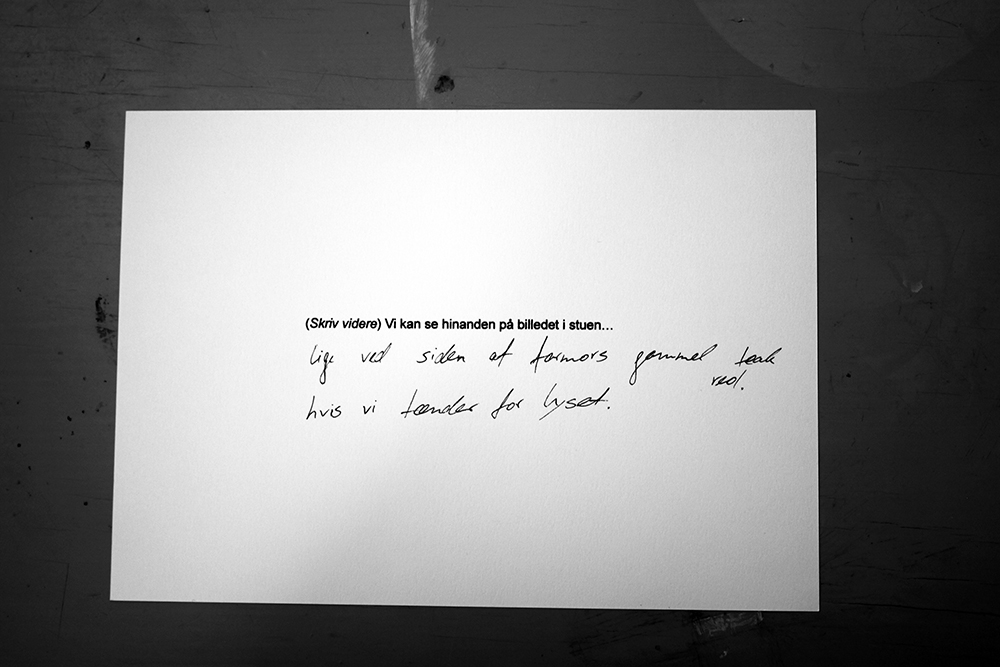 (Skriv videre) Vi kan se hinanden på billedet i stuen...
lige ved siden af farmors gammel teak
red.
hvis vi tænder for lyset.